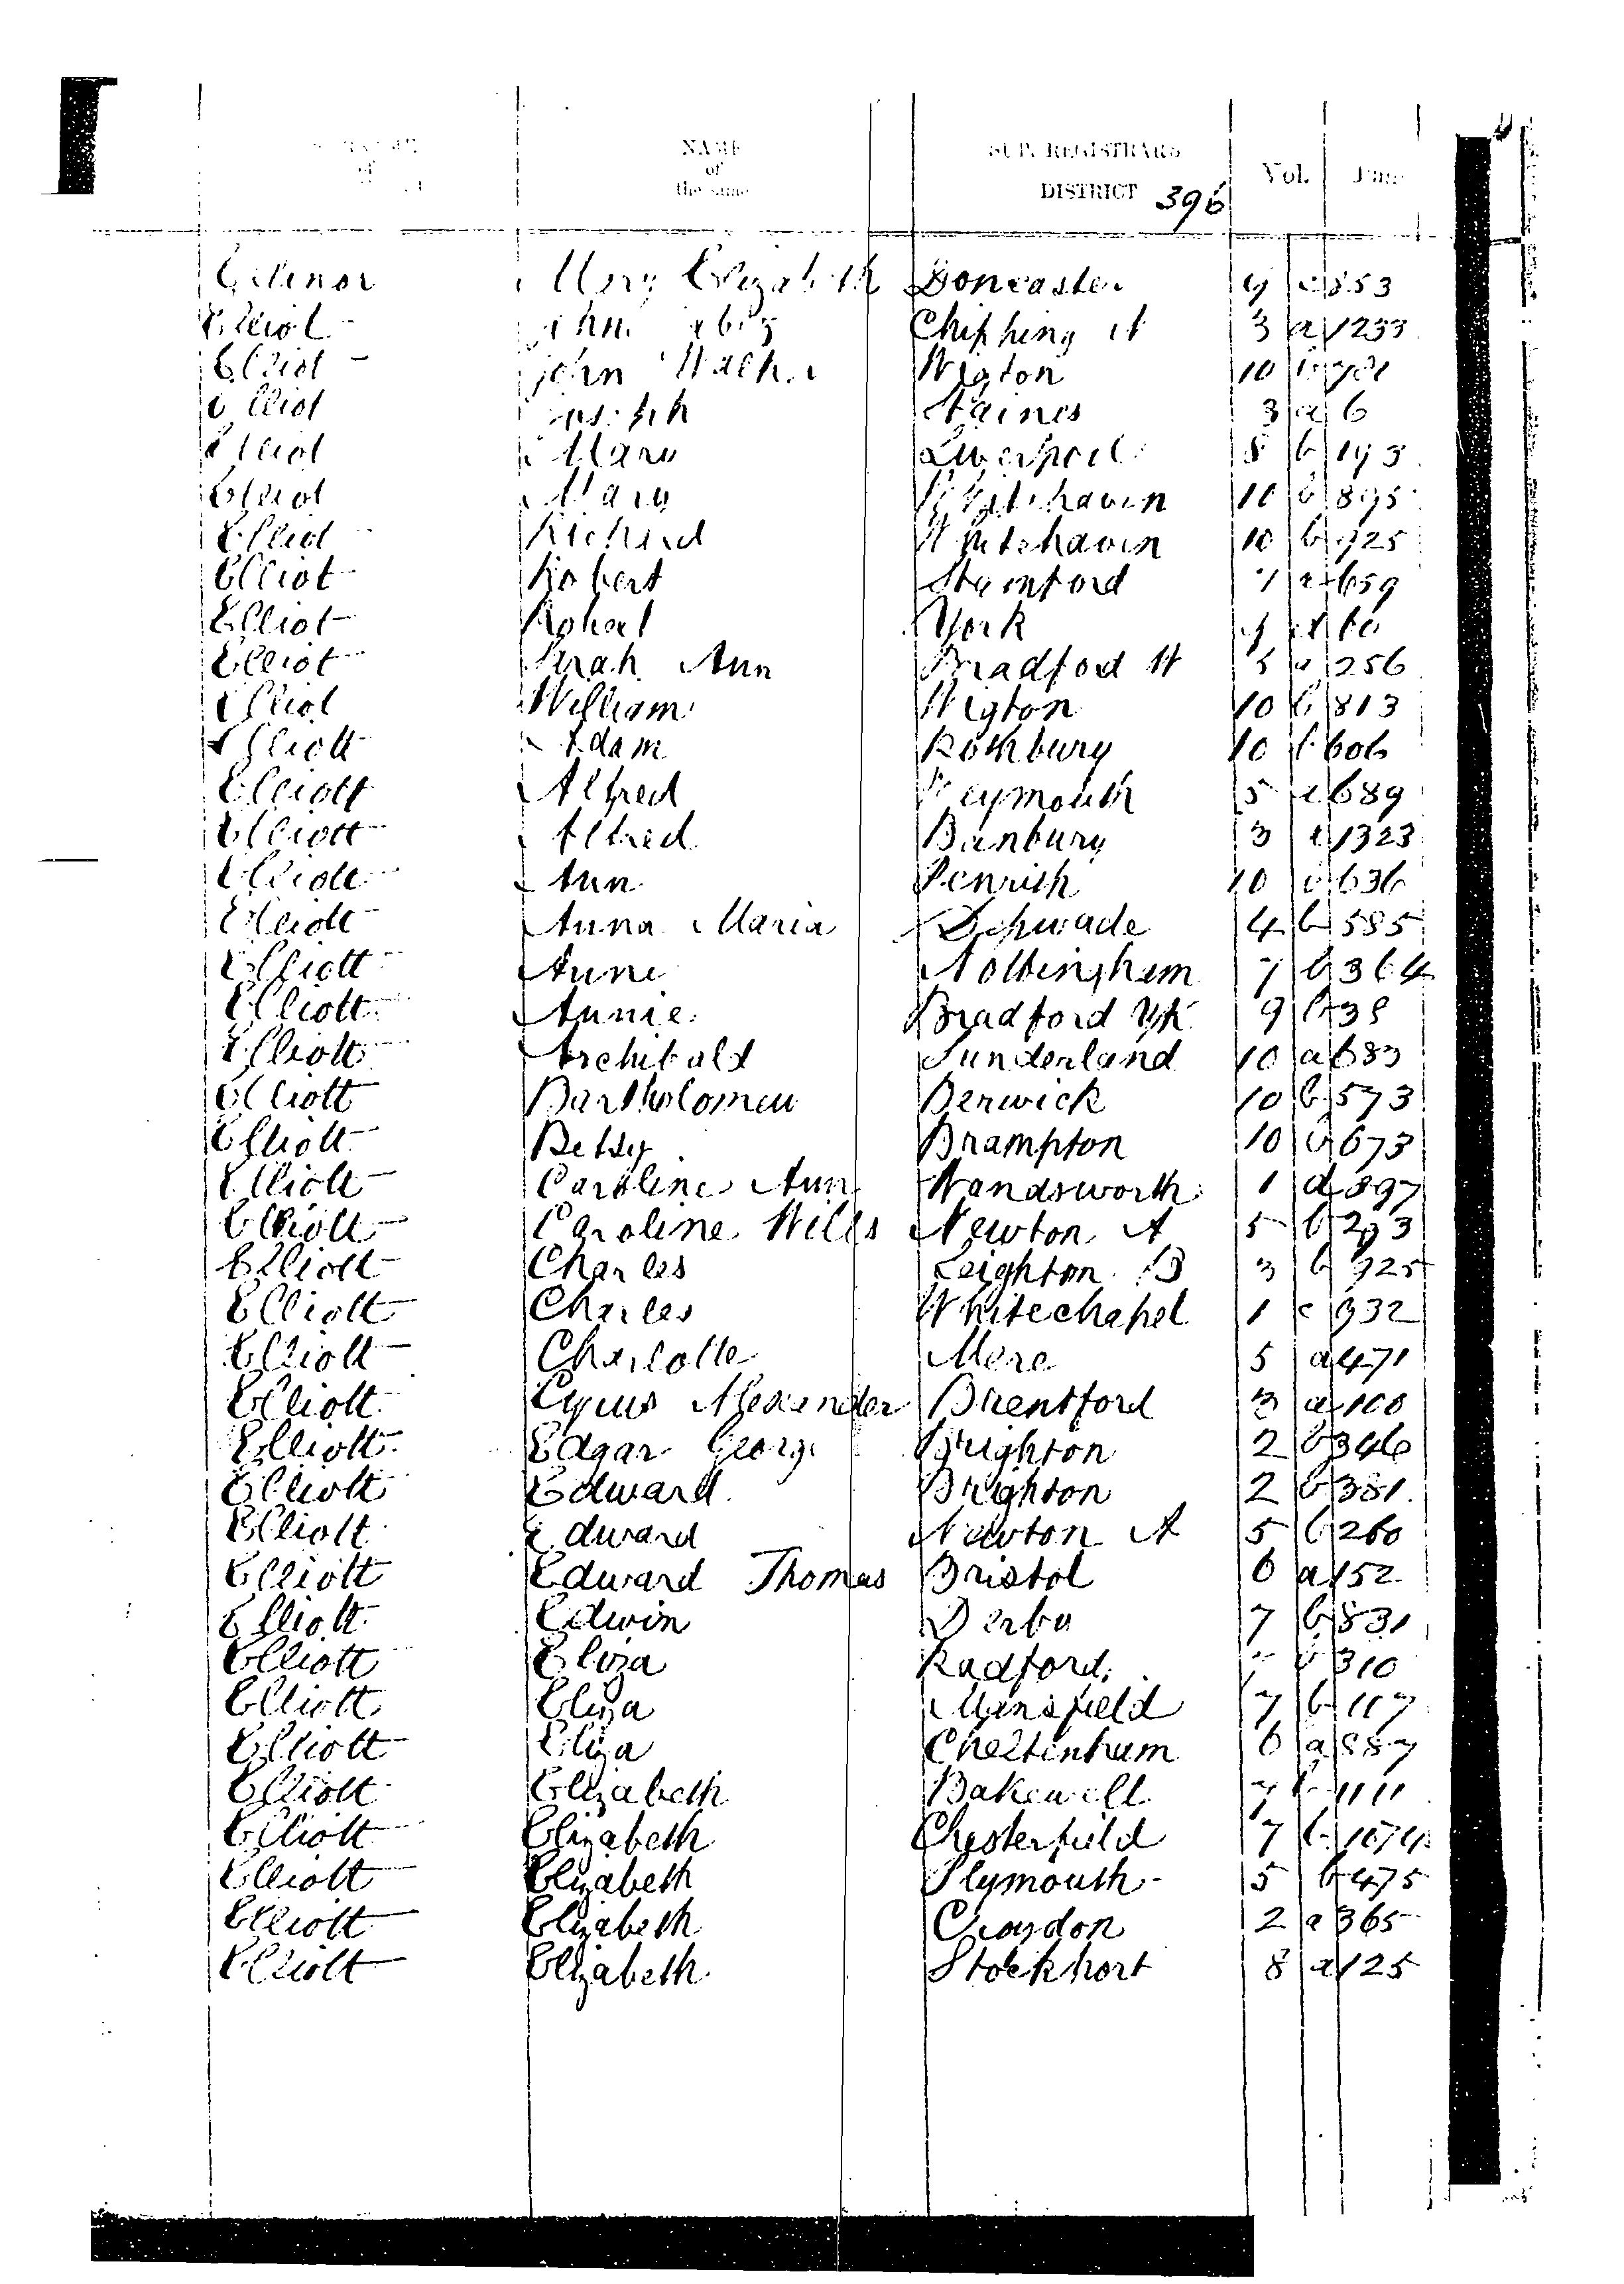 NAME of the same SUP. REGISTRARS DISTRICT Vol.
396
Mary Elizabeth Doncaster 9 c 853
Elliot John Chipping N 3 a 1233
Elliot John Walker Wigton 10 b
Elliot Joseph Staines 3 a 6
Elliot Mary Liverpool 8 b 193
Elliot Mary Whitehaven 10 b 895
Elliot Richard Whitehaven 10 b 925
Elliot Robert Stamford 7 a 659
Elliot Robert York 9 d 60
Elliot Sarah Ann Bradford W 5 a 256
Elliot William Wigton 10 b 813
Elliott Adam Rothbury 10 b 606
Elliott Alfred Weymouth 5 a 689
Elliott Alfred Banbury 3 a 1323
Elliott Ann Penrith 10 b 636
Elliott Anna Maria Depwade 4 b 585
Elliott Annie Nottingham 7 b 364
Elliott Annie Bradford Yk 9 b 38
Elliott Archibald Sunderland 10 a 683
Elliott Bartholomew Berwick 10 b 573
Elliott Betsy Brampton 10 b 673
Elliott Caroline Ann Wandsworth 1 d 897
Elliott Caroline Wills Newton A 5 b 293
Elliott Charles Leighton B 3 b 925
Elliott Charles Whitechapel 1 c 932
Elliott Charlotte Mere 5 a 471
Elliott Cyrus Alexander Brentford 3 a 108
Elliott Edgar George Brighton 2 b 346
Elliott Edward Brighton 2 b 381
Elliott Edward Newton A 5 b 260
Elliott Edward Thomas Bristol 6 a 152
Elliott Edwin Derby 7 b 831
Elliott Eliza Radford b 310
Elliott Eliza Mansfield 7 b 117
Elliott Eliza Cheltenham 6 a 887
Elliott Elizabeth Bakewell 7 b 1111
Elliott Elizabeth Chesterfield 7 b 1074
Elliott Elizabeth Plymouth 5 b 475
Elliott Elizabeth Croydon 2 a 365
Elliott Elizabeth Stockport 8 a 125